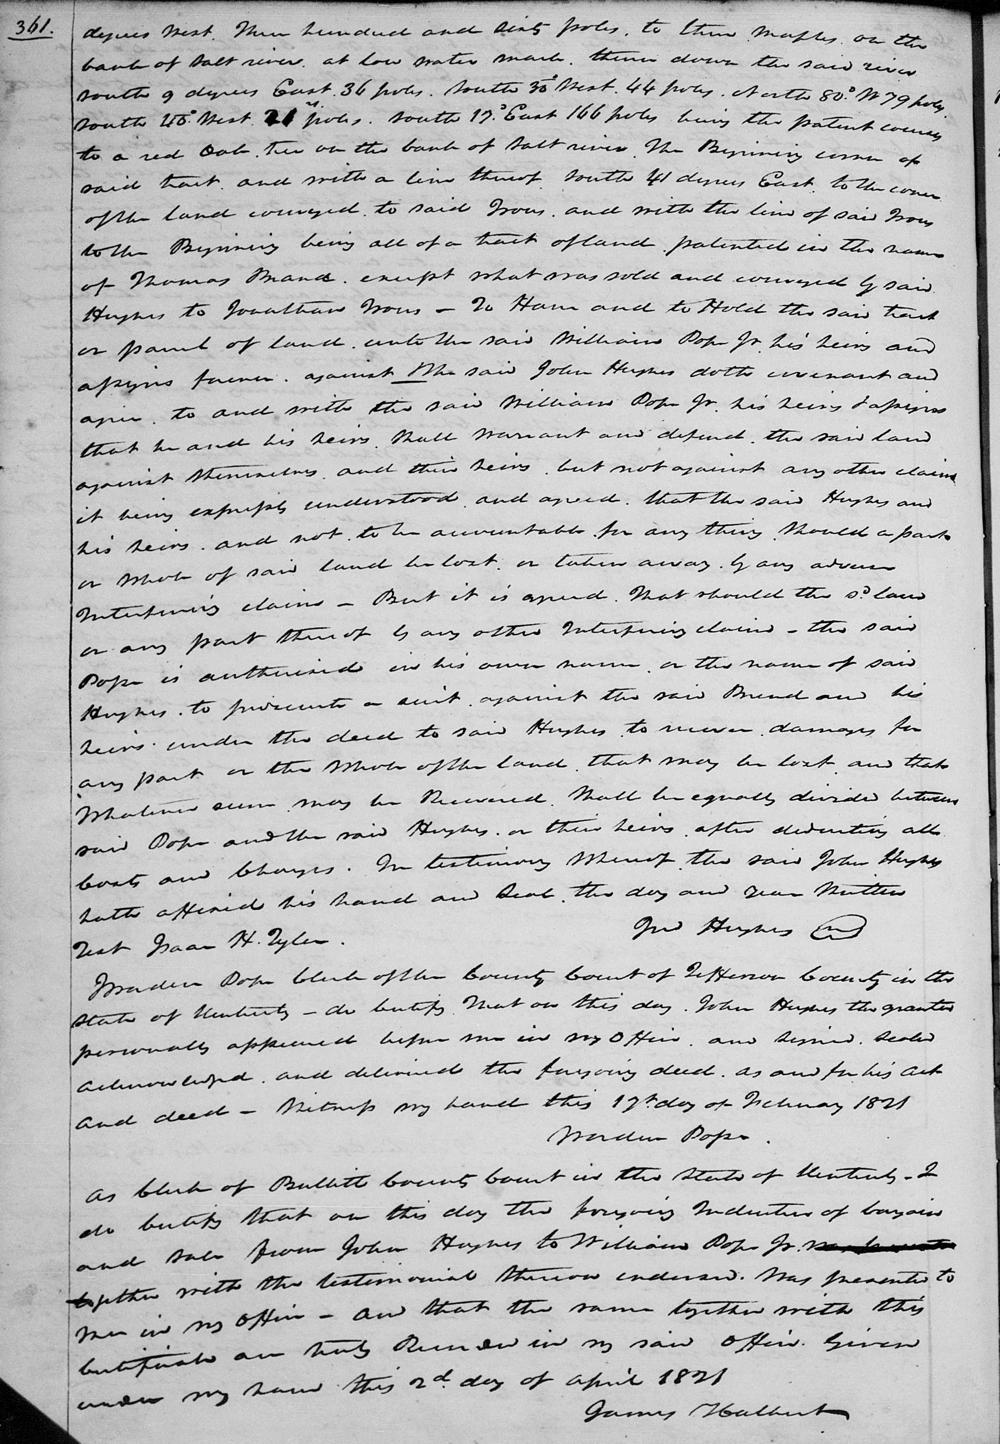 361.
degrees West. Three hundred and sixty poles. to three maples. on the
bank of Salt river. at low water mark. thence down the said river
South 9 degrees East. 36 poles. South 30° West. 44 poles. North 80° W 79 poles.
South 40° West. 21 poles. South 17° East 166 poles being the patent courses
to a red Oak. tree on the bank of Salt river. The Beginning corner of
said tract. and with a line thereof. South 41 degrees East. to the corner
of the land conveyed. to said Irons. and with the line of said Irons
to the Beginning being all of a tract of land. patented in the name
of Thomas Brand. except what was sold and conveyed by said.
Hughes to Jonathan Irons – To Have and to Hold the said tract
or parcel of land. unto the said William Pope Jr. his heirs and
assigns forever. against The said John Hughes doth covenant and
agree. to and with the said William Pope Jr. his heirs & assigns
that he and his heirs. Shall warrant and defend. the said land
against themselves. and their heirs. but not against any other claims
it being expressly understood. and agreed. that the said Hughes and
his heirs. and not. to be accountable. for any thing. Should a part
or Whole of said land be lost. or taken away. by any adverse
Interfering claim – But it is agreed. That should the sd. land
or any part thereof by any other Interfering claim – the said
Pope is authorised in his own name. or the name of said
Hughes. to prosecute a suit. against the said Brand and his
heirs. under the deed to said Hughes to recover. damages for
any part or the Whole of the land. that may be lost and that
Whatever sum. may be Recovered. Shall be equally divide between
said Pope and the said Hughes. or their heirs. after deducting all
Costs and Charges. In testimony Whereof. the said John Hughes
hath affixed his hand and Seal. the day and year Written
Test Isaac H. Tyler. Jno Hughes
I Worden Pope Clerk of the County Court of Jefferson County in the
State of Kentucky – do Certify. That on this day. John Hughes the grantor
personally appeared before me in my Office. and signed. Sealed
acknowledged. and delivered the foregoing deed. as and for his act
and deed – Witness my hand this 17th day of February 1821
Worden Pope.
As Clerk of Bullitt County Court in the State of Kentucky – I
do Certify that on this day the foregoing Indenture of bargain
and Sale from John Hughes to William Pope Jr.
together with the testimonial thereon endorsed. Was presented to
me in my Office – and that the same together with this
Certificate are truly Recorded in my said Office. Given
under my hand this 2d. day of April 1821
James Halbert